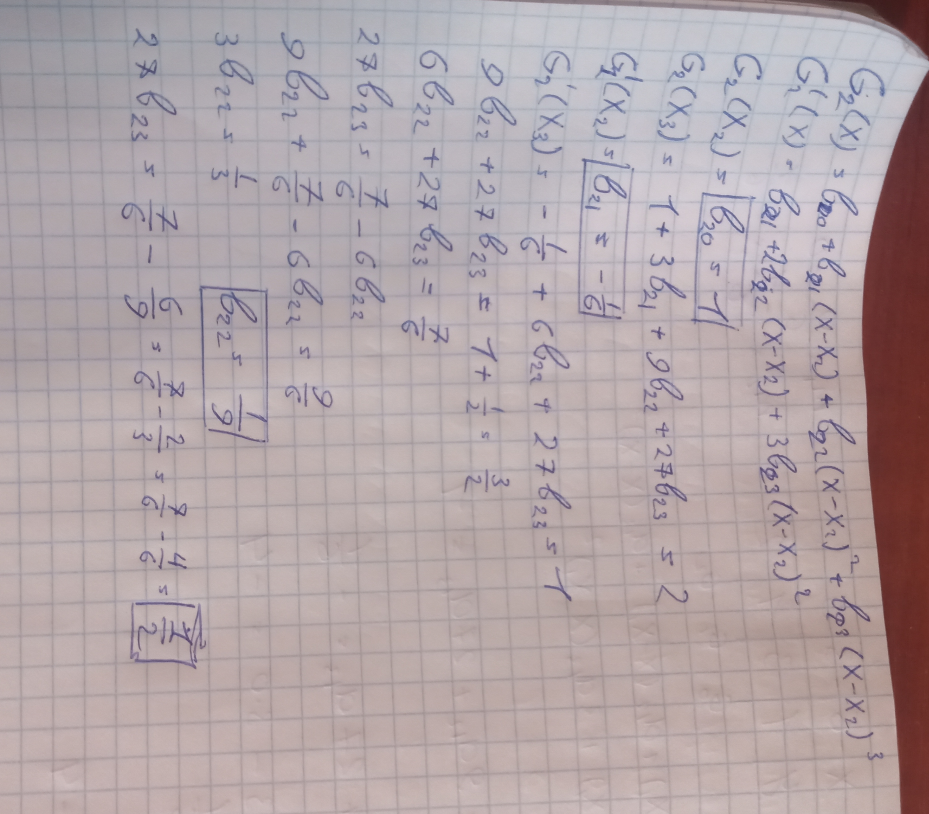 G₂(x) = b₂₀ + b₂₁(x-x₂) + b₂₂(x-x₂)² + b₂₃(x-x₂)³
G₂'(x) = b₂₁ + 2b₂₂(x-x₂) + 3b₂₃(x-x₂)²
G₂(x₂) = b₂₀ = 1
G₂(x₃) = 1 + 3b₂₁ + 9b₂₂ + 27b₂₃ = 2
G₂'(x₂) = b₂₁ = -1/6
G₂'(x₃) = -1/6 + 6b₂₂ + 27b₂₃ = 1
9b₂₂ + 27b₂₃ = 1 + 1/2 = 3/2
6b₂₂ + 27b₂₃ = 7/6
27b₂₃ = 7/6 - 6b₂₂
9b₂₂ + 7/6 - 6b₂₂ = 9/6
3b₂₂ = 1/3 b₂₂ = 1/9
27b₂₃ = 7/6 - 6/9 = 7/6 - 2/3 = 7/6 - 4/6 = 1/2